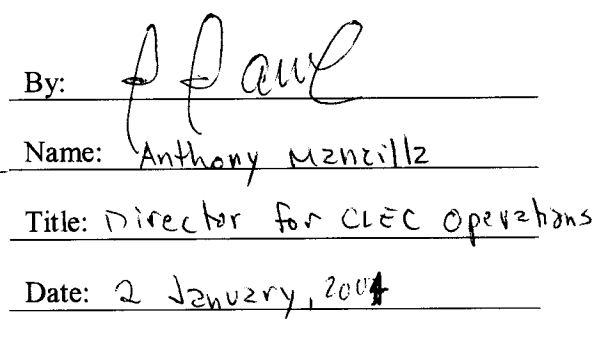 By:
Name: Anthony Manzilla
Title: Director for CLEC Operations
Date: 2 January, 2004